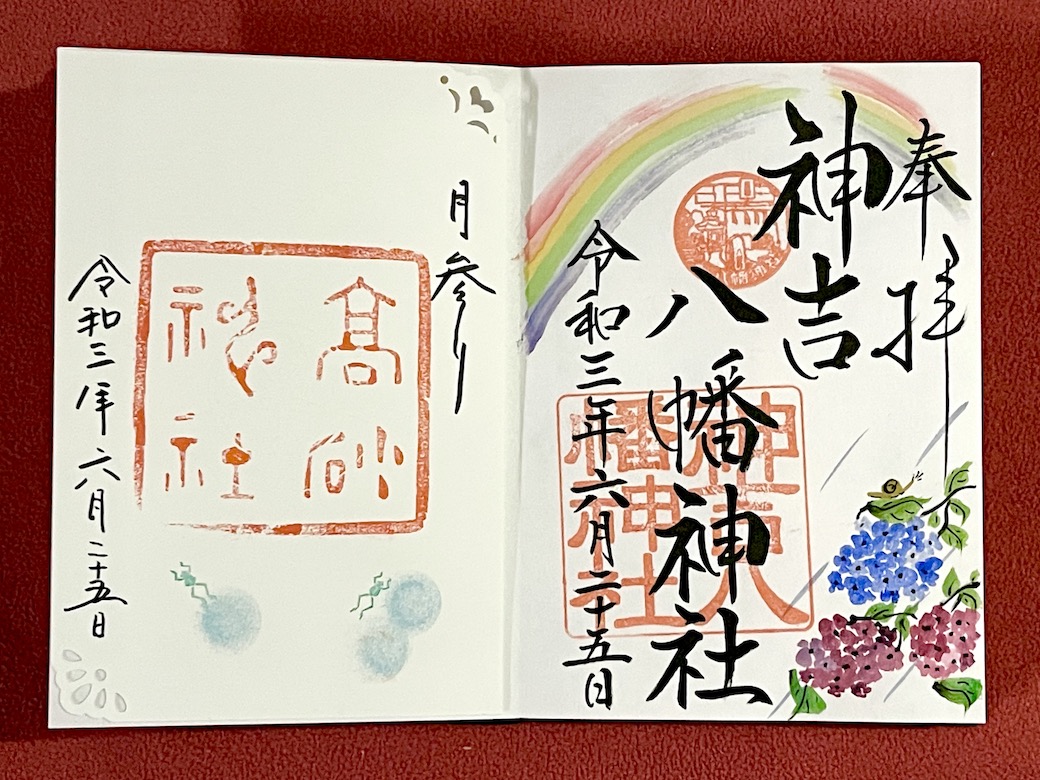 奉拝
神吉
八幡神社
令和三年六月二十五日
月参り
高砂
神社
令和三年六月二十五日